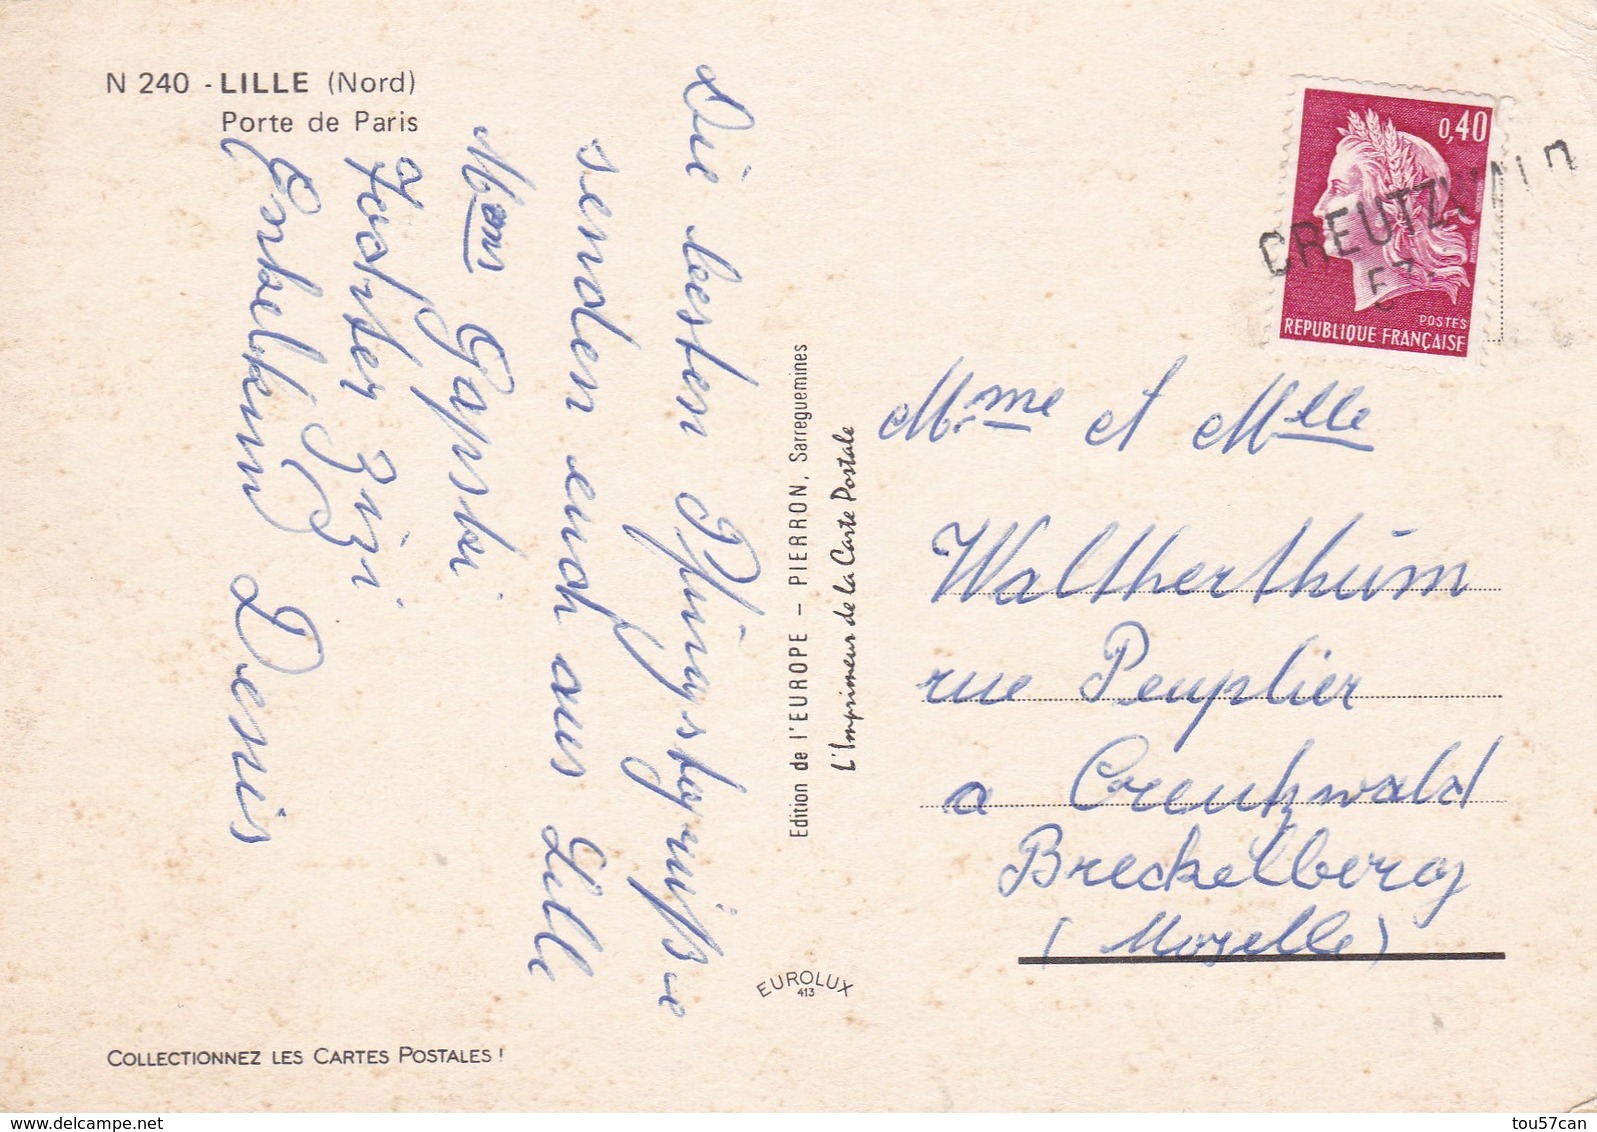 N 240 - LILLE (Nord)
Porte de Paris
Die besten Pfingstgrüße
senden euch aus Lille
Mons Gapski
Tochter Zizi
Enkelkind Denis
Edition de l'EUROPE – PIERRON, Sarreguemines
L'Imprimeur de la Carte Postale
EUROLUX
413
COLLECTIONNEZ LES CARTES POSTALES !
0,40
POSTES
REPUBLIQUE FRANÇAISE
CREUTZWALD
57
Mme et Mlle
Waltherthum
rue Peuplier
a Creutzwald
Breckelberg
(Moselle)
tou57can